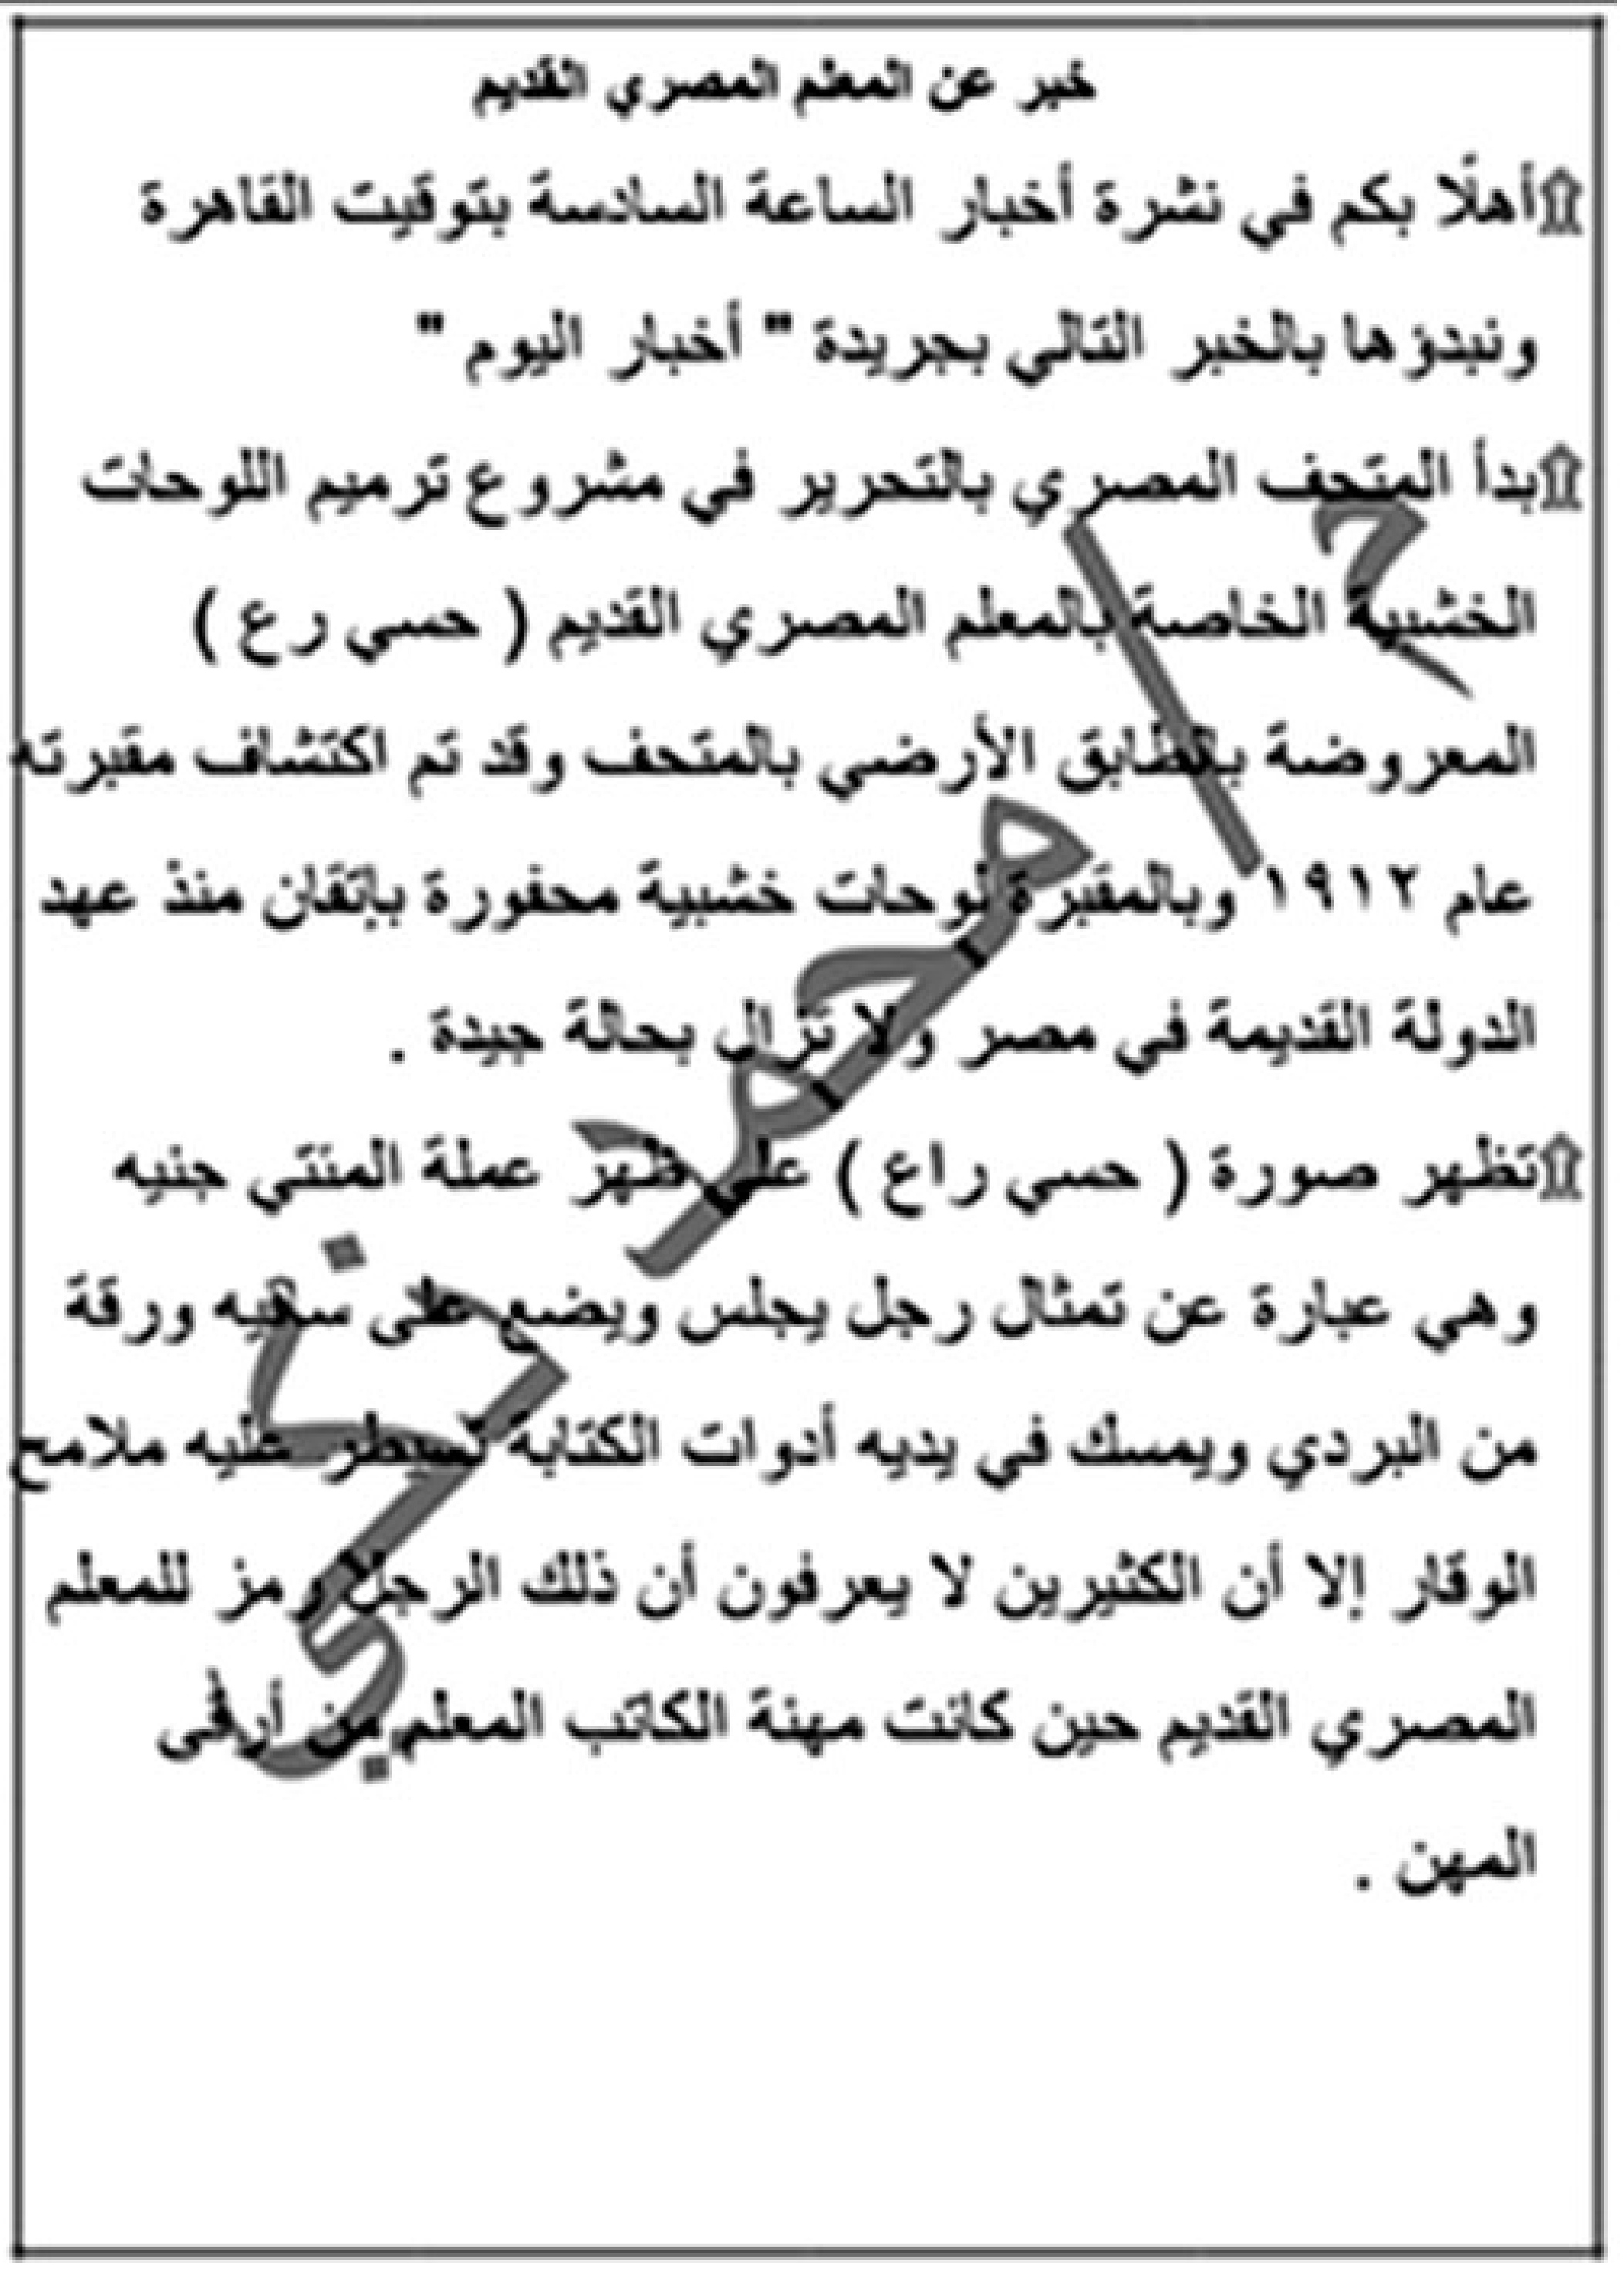 خبر عن المعلم المصري القديم
۩أهلًا بكم في نشرة أخبار الساعة السادسة بتوقيت القاهرة
ونبدؤها بالخبر التالي بجريدة " أخبار اليوم "
۩بدأ المتحف المصري بالتحرير في مشروع ترميم اللوحات
الخشبية الخاصة بالمعلم المصري القديم ( حسي رع )
المعروضة بالطابق الأرضي بالمتحف وقد تم اكتشاف مقبرته
عام ١٩١٢ وبالمقبرة لوحات خشبية محفورة بإتقان منذ عهد
الدولة القديمة في مصر ولا تزال بحالة جيدة .
۩تظهر صورة ( حسي راع ) على ظهر عملة المئتي جنيه
وهي عبارة عن تمثال رجل يجلس ويضع على ورقة
من البردي ويمسك في يديه أدوات الكتابة تسطر عليه ملامح
الوقار إلا أن الكثيرين لا يعرفون أن ذلك الرجل رمز للمعلم
المصري القديم حين كانت مهنة الكاتب المعلم من أرقى
المهن .